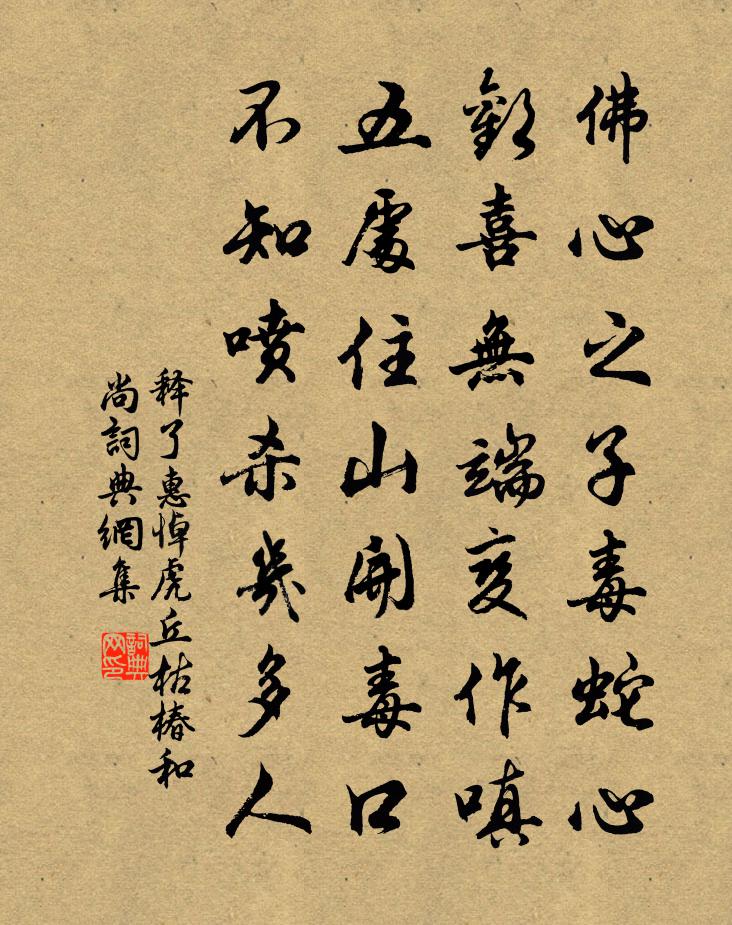 佛心之子毒蛇心
歡喜無端変作嗔
五處住山開毒口
不知噴杀幾多人
释了惠悼虎丘枯椿和
尚詞典網集
詞典
网印